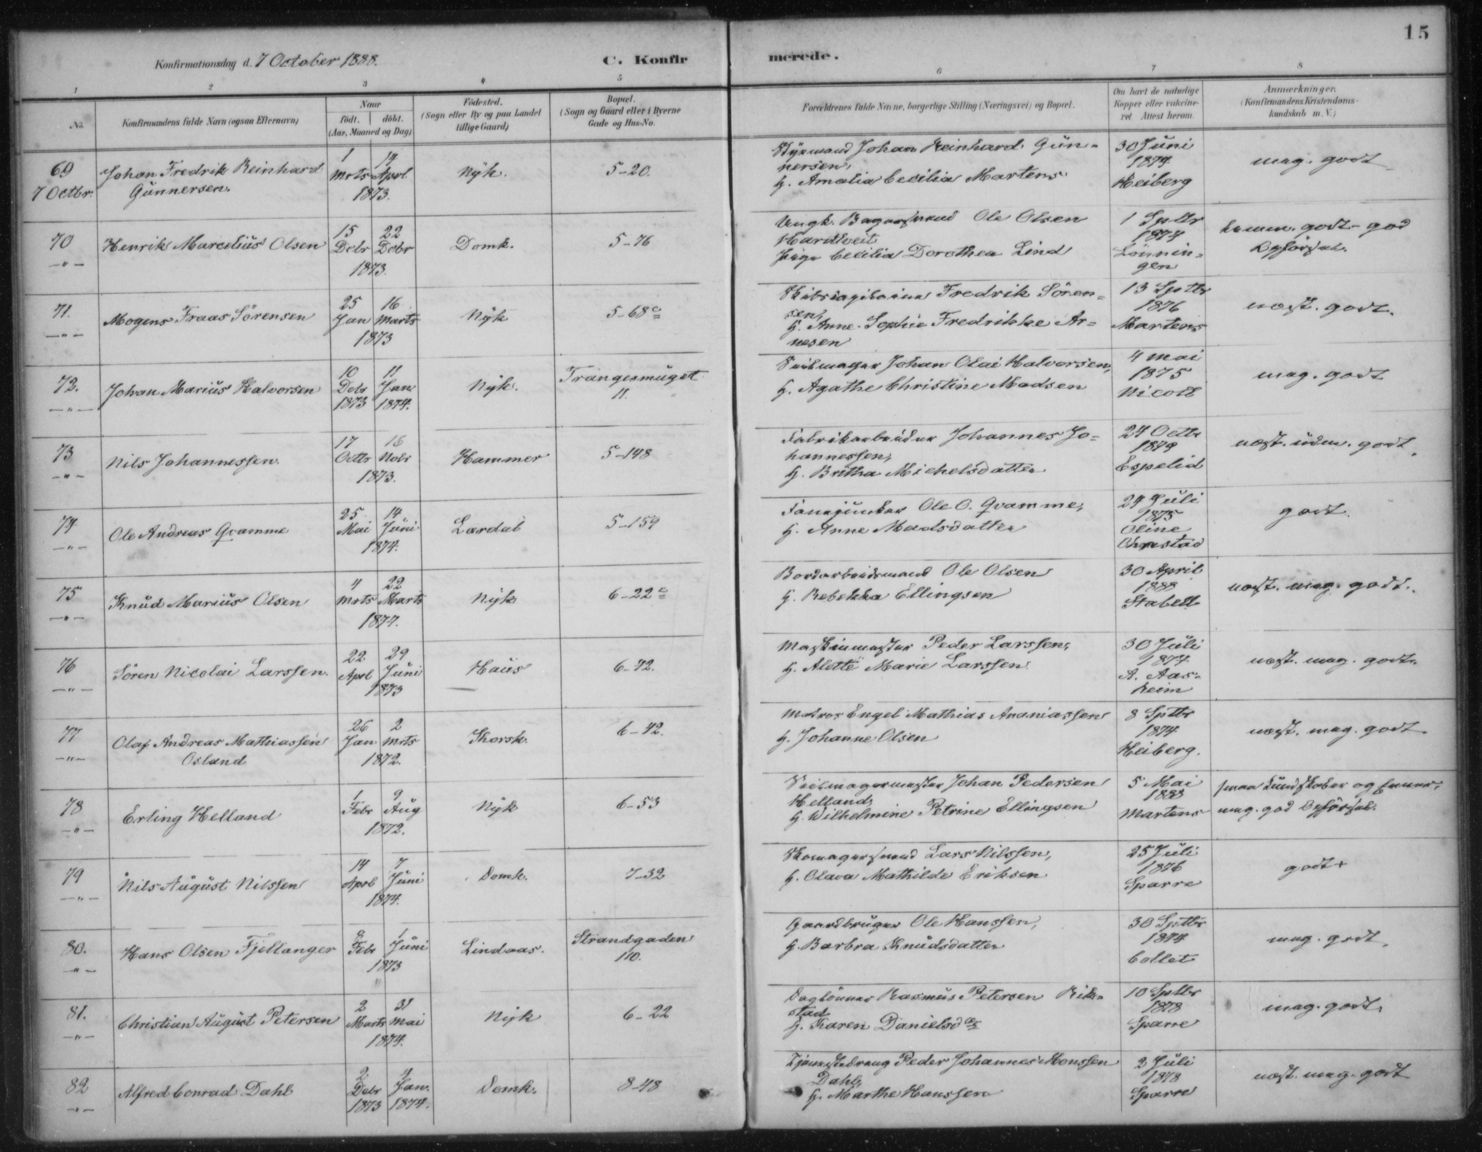 15
Konfirmationsdag d. 7 October 1888.
C. Konfirmerede.
1 2 3 4 5 6 7 8
No.
Konfirmandens fulde Navn (ogsaa Efternavn)
Naar
født. | døbt.
(Aar, Maaned og Dag)
Fødested.
(Sogn eller By og paa Landet
tillige Gaard)
Bopæl.
(Sogn og Gaard eller i Byerne
Gade og Hus-No.
Forældrenes fulde Navne, borgerlige Stilling (Næringsvei) og Bopæl.
Om havt de naturlige
Kopper eller vaccineret
Attest herom.
Anmerkninger.
(Konfirmandens Kristendomskundskab
m. V.)
69
7 Octbr.
Johan Fredrik Reinhard
Gunnersen.
1 Mrts 14 Aprl
1873.
Nyk.
5-20.
Styrmand Johan Reinhard Gunnersen,
H. Amalia Cecilia Martens
30 Juni
1874
Heiberg
mag. godt
70
-"-
Henrik Marcelius Olsen
15 Debr 22 Debr
1873.
Domk.
5-76
Ungk. Bagersvend Ole Olsen
Hardtveit
Pige Cecilia Dorothea Lind
1 Sptbr
1874
Lønningen
temm. godt - god
Opførsel.
71.
-"-
Mogens Fraas Sørensen
25 Jan 16 Marts
1873
Nyk
5-68c
Skibscapitaine Fredrik Sørensen,
H. Anne Sophie Fredrikke Arnesen
13 Sptbr
1876
Martens
næst. godt.
72.
-"-
Johan Marius Halvorsen
10 Debr 1873 11 Jan 1874.
Nyk.
Trangesmuget
11.
Seilmager Johan Olai Halvorsen,
H. Agathe Christine Madsen
4 Mai
1875
Nicoll
mag. godt
73
-"-
Nils Johannessen.
17 Octbr 16 Nobr
1873.
Hammer
5-148
Fabrikarbeider Johannes Johannessen,
H. Britha Michelsdatter
24 Octbr
1874
Espelid
næst. udm. godt.
74
-"-
Ole Andreas Qvamme
25 Mai 14 Juni
1874.
Lærdal
5-159
Fanejunker Ole O. Qvamme,
H. Anne Madsdatter
24 Juli
1875
Oline
Chrestad
godt.
75
-"-
Knud Marius Olsen
4 Mrts 22 Marts
1874.
Nyk
6-22c
Bordarbeidsmand Ole Olsen
H. Rebekka Ellingsen
30 April
1888
Stabell
næst. mag. godt.
76
-"-
Søren Nicolai Larssen.
22 Aprl 29 Juni
1873
Haus
6-42.
Maskinmester Peder Larssen,
H. Alette Marie Larssen
30 Juli
1874
A. Aasheim
næst. mag. godt.
77
-"-
Olaf Andreas Mathiassen
Osland
26 Jan 2 Mrts
1872.
Korsk.
6-42.
Matros Engel Mathias Ananiassen
H. Johanne Olsen
8 Sptbr
1874
Heiberg.
næst. mag. godt
78
-"-
Erling Helland
1 Febr 9 Aug
1872.
Nyk
6-53
Seilmagermester Johan Pedersen
Helland,
H. Wilhelmine Petrine Ellingsen
5 Mai
1883
Martens
smaa Kundskaber og
mag. god Opførsel.
79
-"-
Nils August Nilssen
14 Aprl 7 Juni
1874.
Domk.
7-32
Skomagersvend Lars Nilssen,
H. Olava Mathilde Eriksen
25 Juli
1876
Sparre
godt+
80.
-"-
Hans Olsen Fjellanger
8 Febr 1 Juni
1873
Lindaas.
Strandgaden
110.
Gaardbruger Ole Hanssen,
H Barbra Knudsdatter
30 Sptbr
1874
Collet
mag. godt.
81.
-"-
Christian August Petersen
2 Marts 31 Mai
1874.
Nyk
6-22
Daglønner Rasmus Petersen Rikstad
H. Karen Danielsdtr
10 Sptbr
1878
Sparre
mag. godt.
82
-"-
Alfred Conrad Dahl
2 Debr 1873 2 Jan. 1874.
Domk.
8-48
Tjenestedreng Peder Johannes Monssen
Dahl,
H. Marthe Hanssen
2 Juli
1878
Sparre
næst. mag. godt